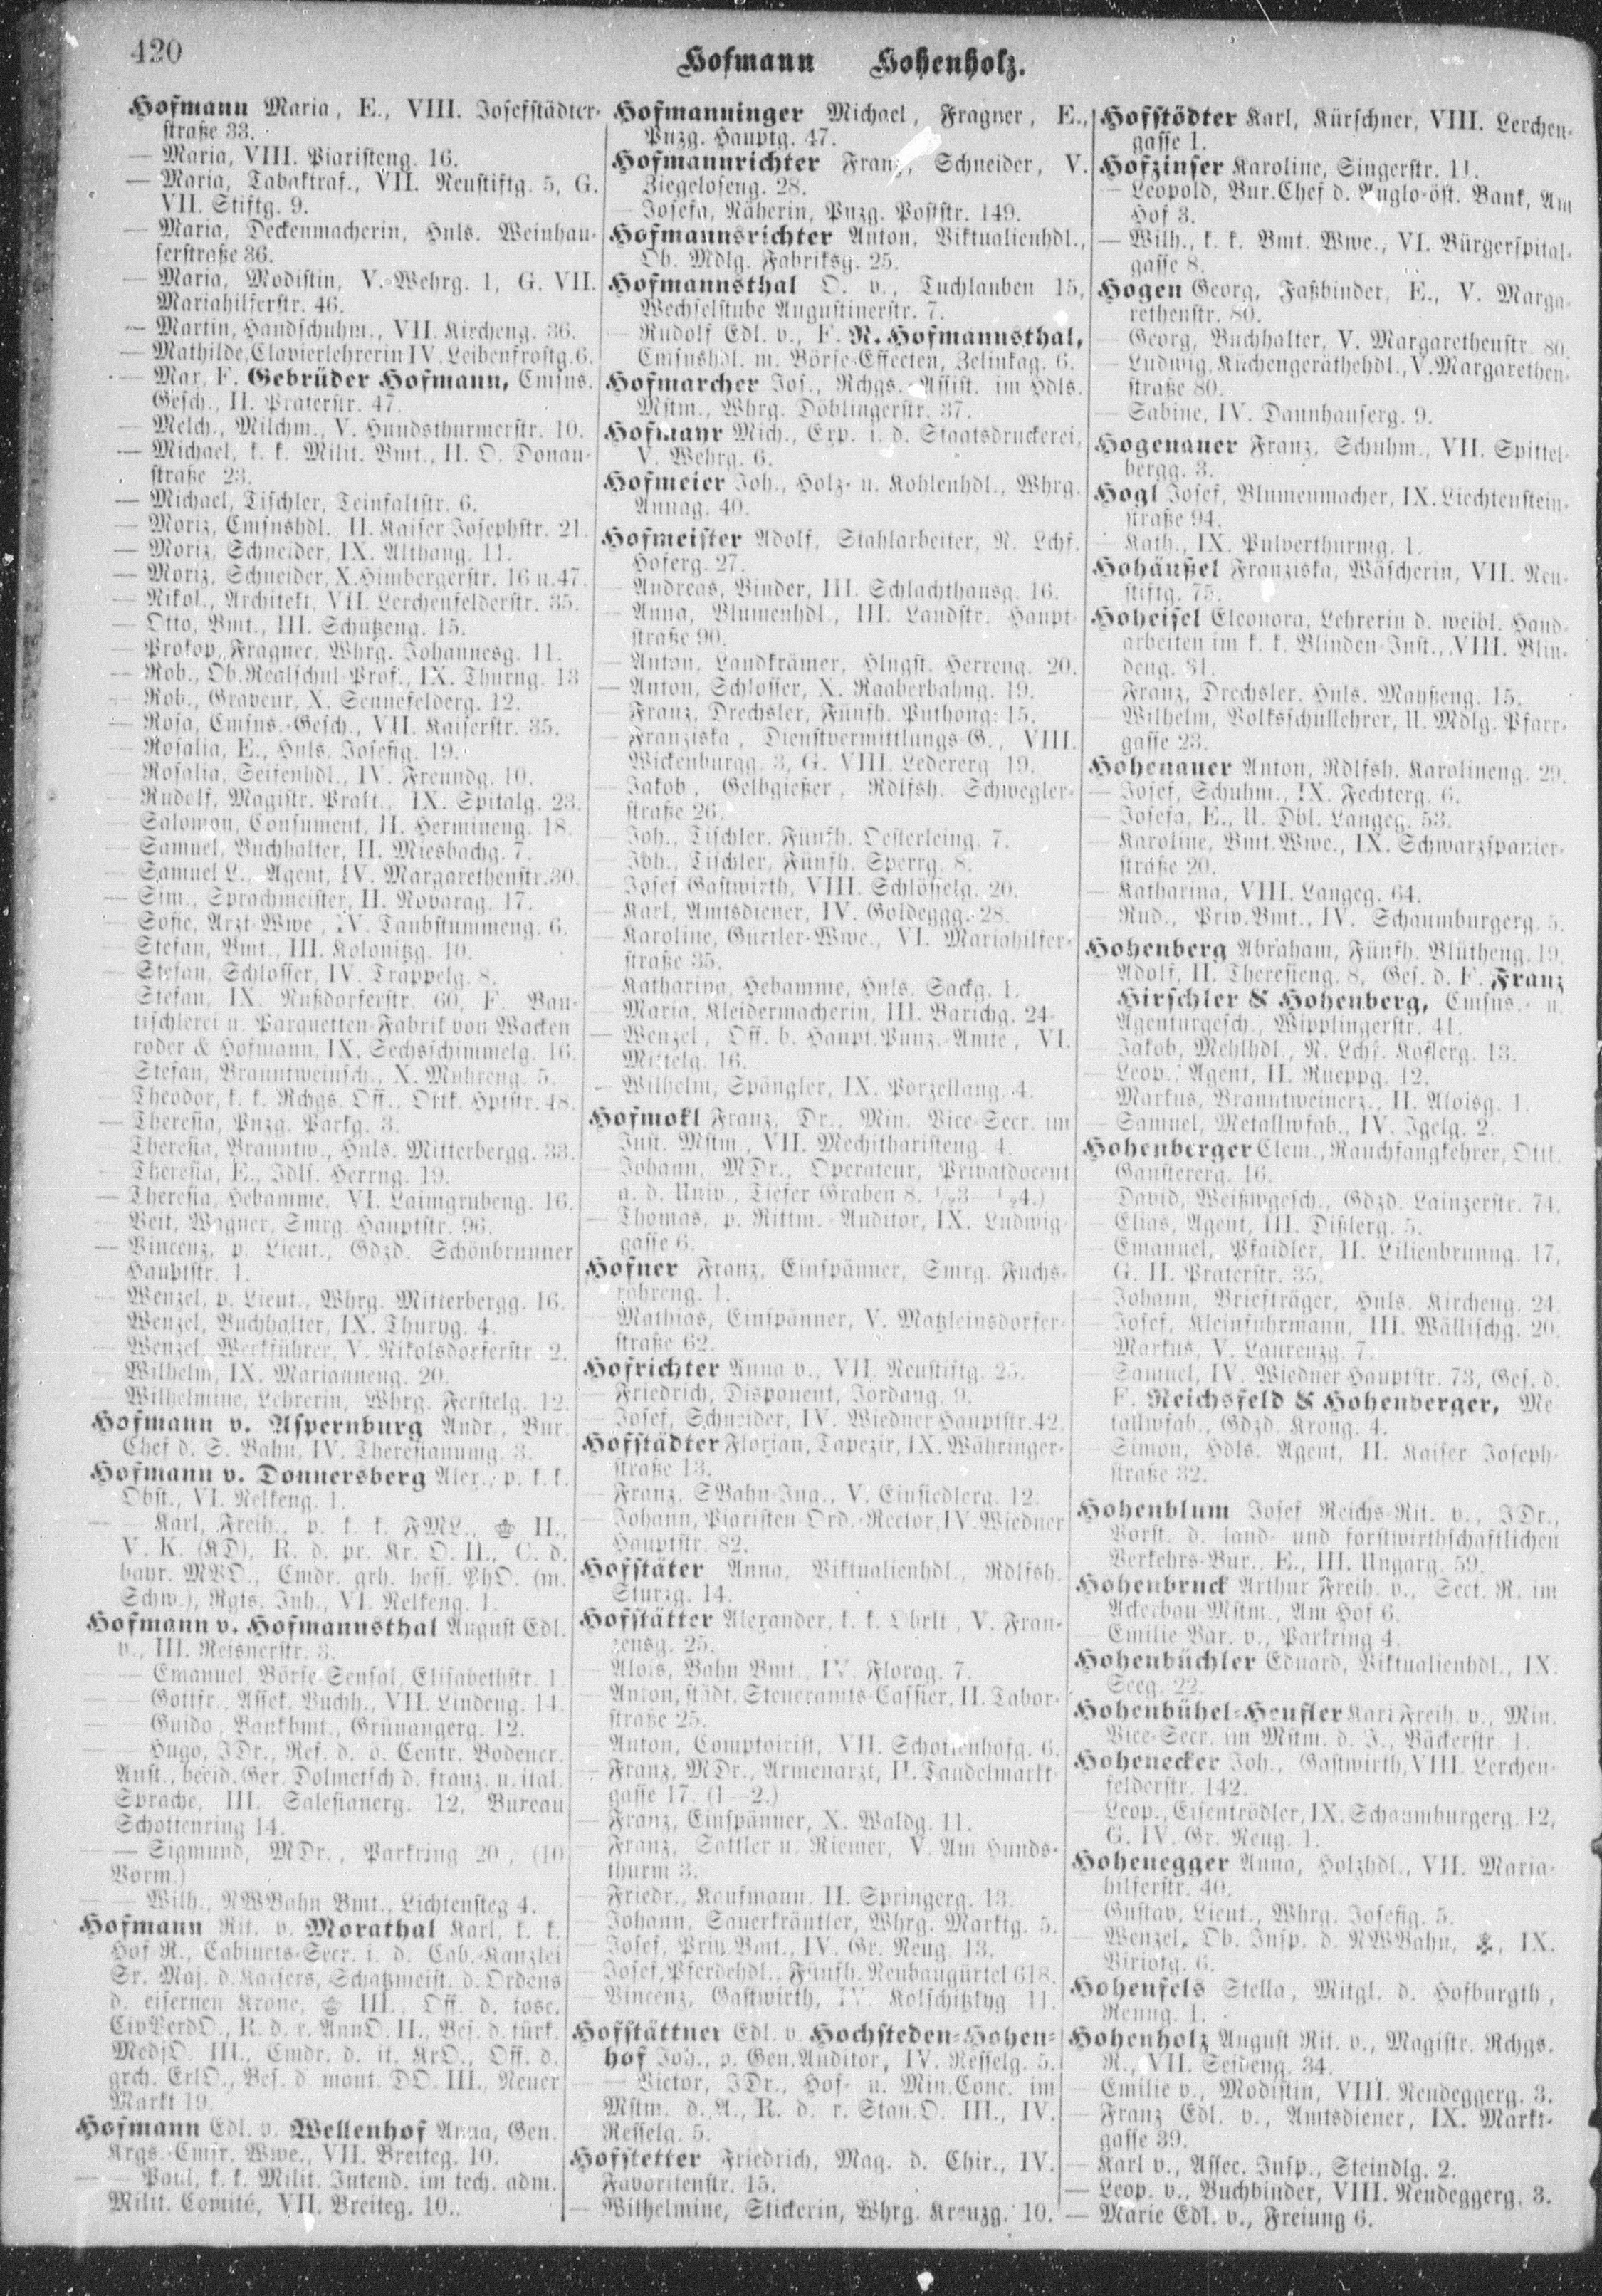 420
Hofmann Hohenholz.
Hofmann Maria, E., VIII. Josefstädter-
straße 33.
— Maria, VIII. Piaristeng. 16.
— Maria, Tabaktraf., VII. Neustiftg. 5, G.
VII. Stiftg. 9.
— Maria, Deckenmacherin, Hnls. Weinhau-
serstraße 36.
— Maria, Modistin, V. Wehrg. 1, G. VII.
Mariahilferstr. 46.
— Martin, Handschuhm., VII. Kircheng. 36.
— Mathilde, Clavierlehrerin IV. Leibenfrostg. 6.
— Max, F. Gebrüder Hofmann, Cmsns.
Gesch., II. Praterstr. 47.
— Melch., Milchm., V. Hundsthurmerstr. 10.
— Michael, k. k. Milit. Bmt., II. O. Donau-
straße 23.
— Michael, Tischler, Teinfaltstr. 6.
— Moriz, Cmsnshdl., II. Kaiser Josephstr. 21.
— Moriz, Schneider, IX. Althang. 11.
— Moriz, Schneider, X. Himbergerstr. 16 u. 47.
— Nikol., Architekt, VII. Lerchenfelderstr. 35.
— Otto, Bmt., III. Schützeng. 15.
— Prokop, Fragner, Whrg. Johannesg. 11.
— Rob., Ob. Realschul-Prof., IX. Thurng. 13
— Rob., Graveur, X. Sennefelderg. 12.
— Rosa, Cmsns.-Gesch., VII. Kaiserstr. 35.
— Rosalia, E., Hnls. Josefig. 19.
— Rosalia, Seifenhdl., IV. Freundg. 10.
— Rudolf, Magistr. Prakt., IX. Spitalg. 23.
— Salomon, Consument, II. Hermineng. 18.
— Samuel, Buchhalter, II. Miesbachg. 7.
— Samuel L., Agent, IV. Margarethenstr. 30.
— Sim., Sprachmeister, II. Novarag. 17.
— Sofie, Arzt-Wwe, IV. Taubstummeng. 6.
— Stefan, Bmt., III. Kolonitzg. 10.
— Stefan, Schlosser, IV. Trappelg. 8.
Stefan, IX. Nußdorferstr. 60, F. Bau-
tischlerei u. Parquetten-Fabrik von Wacken
roder & Hofmann, IX. Sechsschimmelg. 16.
— Stefan, Branntweinsch., X. Muhreng. 5.
— Theodor, k. k. Rchgs. Off., Ottk. Hptstr. 48.
— Theresia, Pnzg. Parkg. 3.
Theresia, Branntw., Hnls. Mitterbergg. 33.
— Theresia, E., Jdls. Herrng. 19.
— Theresia, Hebamme, VI. Laimgrubeng. 16.
— Veit, Wagner, Smrg. Hauptstr. 96.
— Vincenz, p. Lieut., Gdzd. Schönbrunner
Hauptstr. 1.
— Wenzel, p. Lieut., Whrg. Mitterbergg. 16.
— Wenzel, Buchhalter, IX. Thuryg. 4.
— Wenzel, Werkführer, V. Nikolsdorferstr. 2.
— Wilhelm, IX. Marianneng. 20.
— Wilhelmine, Lehrerin, Whrg. Ferstelg. 12.
Hofmann v. Aspernburg Andr., Bur.
Chef d. S. Bahn, IV. Theresianumg. 3.
Hofmann v. Donnersberg Alex., p. k. k.
Obst., VI. Nelkeng. 1.
— — Karl, Freih., p. k. k. FML., II.,
V. K. (KD), R. d. pr. Kr. O. II., C. d.
bayr. MVO., Cmdr. grh. hess. PhO. (m.
Schw.), Rgts. Inh., VI. Nelkeng. 1.
Hofmann v. Hofmannsthal August Edl.
v., III. Reisnerstr. 3.
— — Emanuel, Börse-Sensal, Elisabethstr. 1
— — Gottfr., Assek. Buchh., VII. Lindeng. 14.
— — Guido, Bankbmt., Grünangerg. 12.
— — Hugo, JDr., Ref. d. ö. Centr. Bodencr.
Anst., beeid. Ger. Dolmetsch d. franz. u. ital.
Sprache, III. Salesianerg. 12, Bureau
Schottenring 14.
— — Sigmund, MDr., Parkring 20, (10
Vorm.)
— — Wilh., NWBahn Bmt., Lichtensteg 4.
Hofmann Rit. v. Morathal Karl, k. k.
Hof-R., Cabinets-Secr. i. d. Cab.-Kanzlei
Sr. Maj. d. Kaisers, Schatzmeist. d. Ordens
d. eisernen Krone, III., Off. d. tosc.
CivVerdO., R. d. r. AnnO. II., Bes. d. türk.
MedjO. III., Cmdr. d. it. KrO., Off. d.
grch. ErlO., Bes. d mont. DO. III., Neuer
Markt 19.
Hofmann Edl. v. Wellenhof Anna, Gen.
Krgs.-Cmsr. Wwe., VII. Breiteg. 10.
— — Paul, k. k. Milit. Intend. im tech. adm.
Milit. Comité, VII. Breiteg. 10.
Hofmanninger Michael, Fragner, E.,
Pnzg. Hauptg. 47.
Hofmannrichter Franz, Schneider, V.
Ziegelofeng. 28.
— Josefa, Näherin, Pnzg. Poststr. 149.
Hofmannsrichter Anton, Viktualienhdl.,
Ob. Mdlg. Fabriksg. 25.
Hofmannsthal O. v., Tuchlauben 15,
Wechselstube Augustinerstr. 7.
— Rudolf Edl. v., F. R. Hofmannsthal,
Cmsnshdl. m. Börse-Effecten, Zelinkag. 6.
Hofmarcher Jos., Rchgs.-Assist. im Hdls.
Mstm., Whrg. Döblingerstr. 37.
Hofmayr Mich., Exp. i. d. Staatsdruckerei,
V. Wehrg. 6.
Hofmeier Joh., Holz- u. Kohlenhdl., Whrg.
Annag. 40.
Hofmeister Adolf, Stahlarbeiter, N. Lchf.
Hoferg. 27.
— Andreas, Binder, III. Schlachthausg. 16.
— Anna, Blumenhdl., III. Landstr. Haupt-
straße 90.
— Anton, Landkrämer, Hlngst. Herreng. 20.
— Anton, Schlosser, X. Raaberbahng. 19.
— Franz, Drechsler, Fünfh. Puthong. 15.
— Franziska, Dienstvermittlungs-G., VIII.
Wickenburgg. 3, G. VIII. Ledererg. 19.
— Jakob, Gelbgießer, Rdlfsh. Schwegler-
straße 26.
— Joh., Tischler, Fünfh. Oesterleing. 7.
— Joh., Tischler, Fünfh. Sperrg. 8.
— Josef Gastwirth, VIII. Schlösselg. 20.
— Karl, Amtsdiener, IV. Goldeggg. 28.
— Karoline, Gürtler-Wwe., VI. Mariahilfer-
straße 35.
— Katharina, Hebamme, Hnls. Sackg. 1.
— Maria, Kleidermacherin, III. Barichg. 24
— Wenzel, Off. b. Haupt.Punz.-Amte, VI.
Mittelg. 16.
— Wilhelm, Spängler, IX. Porzellang. 4.
Hofmokl Franz, Dr., Min. Vice-Secr. im
Just. Mstm., VII. Mechitharisteng. 4.
— Johann, MDr., Operateur, Privatdocent
a. d. Univ., Tiefer Graben 8. ½3—½4.)
— Thomas, p. Rittm.-Auditor, IX. Ludwig-
gasse 6.
Hofner Franz, Einspänner, Smrg. Fuchs-
röhreng. 1.
— Mathias, Einspänner, V. Matzleinsdorfer-
straße 62.
Hofrichter Anna v., VII. Neustiftg. 25.
— Friedrich, Disponent, Jordang. 9.
— Josef, Schneider, IV. Wiedner Hauptstr. 42.
Hofstädter Florian, Tapezir, IX. Währinger-
straße 13.
— Franz, SBahn-Ing., V. Einsiedlerg. 12.
— Johann, Piaristen-Ord.-Rector, IV. Wiedner
Hauptstr. 82.
Hofstäter Anna, Viktualienhdl., Rdlfsh.
Sturzg. 14.
Hofstätter Alexander, k. k. Obrlt, V. Fran-
zensg. 25.
— Alois, Bahn Bmt., IV. Florag. 7.
— Anton, städt. Steueramts-Cassier, II. Tabor-
straße 25.
— Anton, Comptoirist, VII. Schottenhofg. 6.
— Franz, MDr., Armenarzt, II. Tandelmarkt-
gasse 17. (1—2.)
— Franz, Einspänner, X. Waldg. 11.
— Franz, Sattler u. Riemer, V. Am Hunds-
thurm 3.
— Friedr., Kaufmann, II. Springerg. 13.
— Johann, Sauerkräutler, Whrg. Marktg. 5.
— Josef, Priv.Bmt., IV. Gr. Neug. 13.
— Josef, Pferdehdl., Fünfh. Neubaugürtel 618.
— Vincenz, Gastwirth, IV. Kolschitzkyg. 11.
Hofstättner Edl. v. Hochsteden-Hohen-
hof Joh., p. Gen.Auditor, IV. Resselg. 5.
— — Victor, JDr., Hof- u. Min.Conc. im
Mstm. d. A., R. d. r. Stan.O. III., IV.
Resselg. 5.
Hofstetter Friedrich, Mag. d. Chir., IV.
Favoritenstr. 15.
— Wilhelmine, Stickerin, Whrg. Kreuzg. 10.
Hofstödter Karl, Kürschner, VIII. Lerchen-
gasse 1.
Hofzinser Karoline, Singerstr. 11.
— Leopold, Bur.Chef d. Anglo-öst. Bank, Am
Hof 3.
— Wilh., k. k. Bmt. Wwe., VI. Bürgerspital-
gasse 8.
Hogen Georg, Faßbinder, E., V. Marga-
rethenstr. 80.
— Georg, Buchhalter, V. Margarethenstr. 80.
— Ludwig, Küchengeräthehdl., V. Margarethen-
straße 80.
— Sabine, IV. Dannhauserg. 9.
Hogenauer Franz, Schuhm., VII. Spittel-
bergg. 3.
Hogl Josef, Blumenmacher, IX. Liechtenstein-
straße 94.
— Kath., IX. Pulverthurmg. 1.
Hohäußel Franziska, Wäscherin, VII. Neu-
stiftg. 75.
Hoheisel Eleonora, Lehrerin d. weibl. Hand-
arbeiten im k. k. Blinden-Inst., VIII. Blin-
deng. 31.
— Franz, Drechsler, Hnls. Mayßeng. 15.
— Wilhelm, Volksschullehrer, U. Mdlg. Pfarr-
gasse 23.
Hohenauer Anton, Rdlfsh. Karolineng. 29.
— Josef, Schuhm., IX. Fechterg. 6.
— Josefa, E., U. Dbl. Langeg. 53.
— Karoline, Bmt.Wwe., IX. Schwarzspanier-
straße 20.
— Katharina, VIII. Langeg. 64.
— Rud., Priv.Bmt., IV. Schaumburgerg. 5.
Hohenberg Abraham, Fünfh. Blütheng. 19.
— Adolf, II. Theresieng. 8, Ges. d. F. Franz
Hirschler & Hohenberg, Cmsns.- u.
Agenturgesch., Wipplingerstr. 41.
— Jakob, Mehlhdl., N. Lchf. Koflerg. 13.
— Leop., Agent, II. Rueppg. 12.
— Markus, Branntweinerz., II. Aloisg. 1.
— Samuel, Metallwfab., IV. Igelg. 2.
Hohenberger Clem., Rauchfangkehrer, Ottk.
Gansterergg. 16.
— David, Weißwgesch., Gdzd. Lainzerstr. 74.
— Elias, Agent, III. Dißlerg. 5.
— Emanuel, Pfaidler, II. Lilienbrunng. 17,
G. II. Praterstr. 35.
— Johann, Briefträger, Hnls. Kircheng. 24.
— Josef, Kleinfuhrmann, III. Wällischg. 20.
— Markus, V. Laurenzg. 7.
— Samuel, IV. Wiedner Hauptstr. 73, Ges. d.
F. Reichsfeld & Hohenberger, Me
tallwfab., Gdzd. Krong. 4.
— Simon, Hdls. Agent, II. Kaiser Joseph-
straße 32.
Hohenblum Josef Reichs-Rit. v., JDr.,
Vorst. d. land- und forstwirthschaftlichen
Verkehrs-Bur., E., III. Ungarg. 59.
Hohenbruck Arthur Freih. v., Sect. R. im
Ackerbau-Mstm., Am Hof 6.
— Emilie Bar. v., Parkring 4.
Hohenbüchler Eduard, Viktualienhdl., IX.
Seeg. 22.
Hohenbühel-Heufler Karl Freih. v., Min.
Vice-Secr. im Mstm. d. I., Bäckerstr. 1.
Hohenecker Joh., Gastwirth, VIII. Lerchen-
felderstr. 142.
— Leop., Eisentrödler, IX. Schaumburgerg. 12,
G. IV. Gr. Neug. 1.
Hohenegger Anna, Holzhdl., VII. Maria-
hilferstr. 40.
— Gustav, Lieut., Whrg. Josefig. 5.
— Wenzel, Ob. Insp. d. NWBahn, IX.
Viriotg. 6.
Hohenfels Stella, Mitgl. d. Hofburgth,
Renng. 1.
Hohenholz August Rit. v., Magistr. Rchgs.
R., VII. Seideng. 34.
— Emilie v., Modistin, VIII. Neudeggerg. 3.
— Franz Edl. v., Amtsdiener, IX. Markt-
gasse 39.
— Karl v., Assec. Insp., Steindlg. 2.
— Leop. v., Buchbinder, VIII. Neudeggerg. 3.
— Marie Edl. v., Freiung 6.